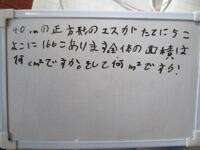 40cmの正方形のマスがたてに5こ
よこに166こあります全体の面積は
何cm²ですか。そして何m²ですか?